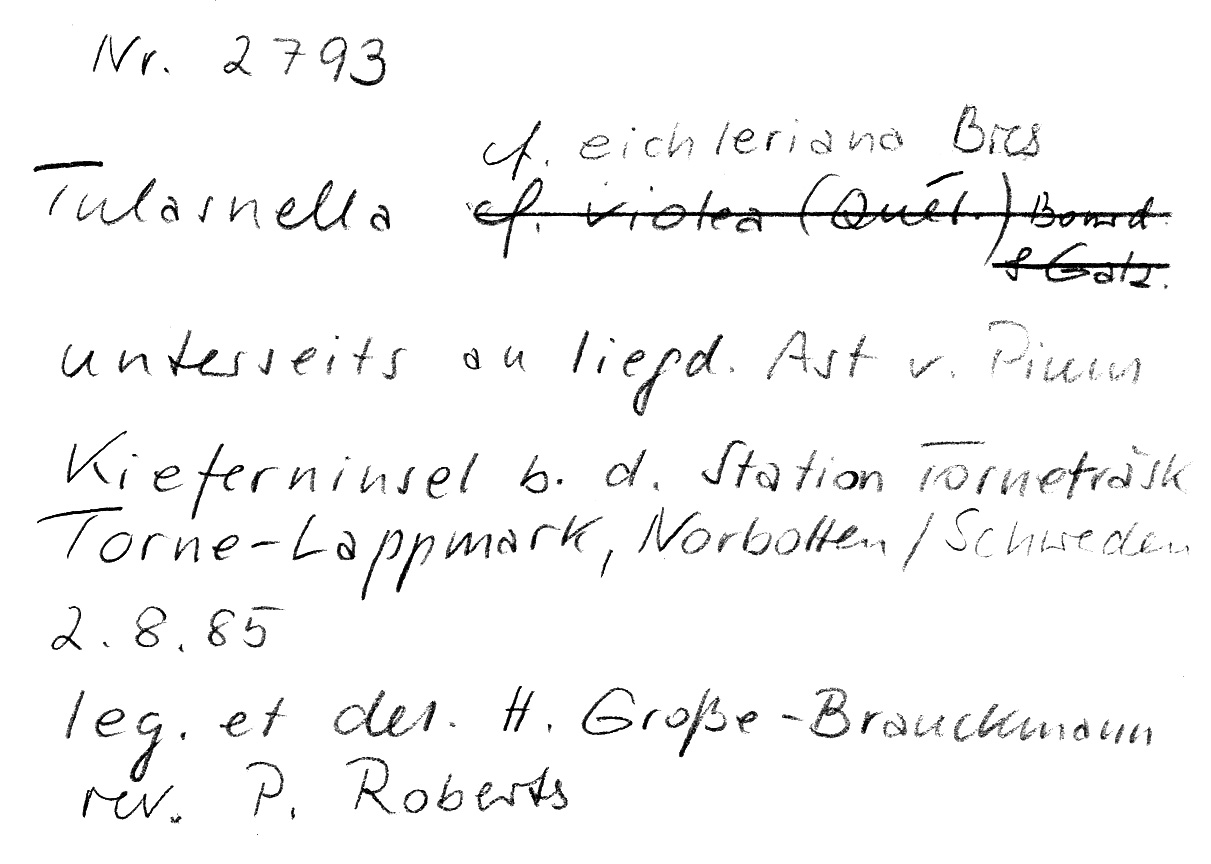 Nr. 2793
cf. eichleriana Bres
Tulasnella cf. violea (Quél.) Bourd.
& Galz.
unterseits an liegd. Ast v. Pinus
Kieferninsel b. d. Station Torneträsk
Torne-Lappmark, Norbotten/Schweden
2.8.85
leg. et det. H. Große-Brauckmann
rev. P. Roberts